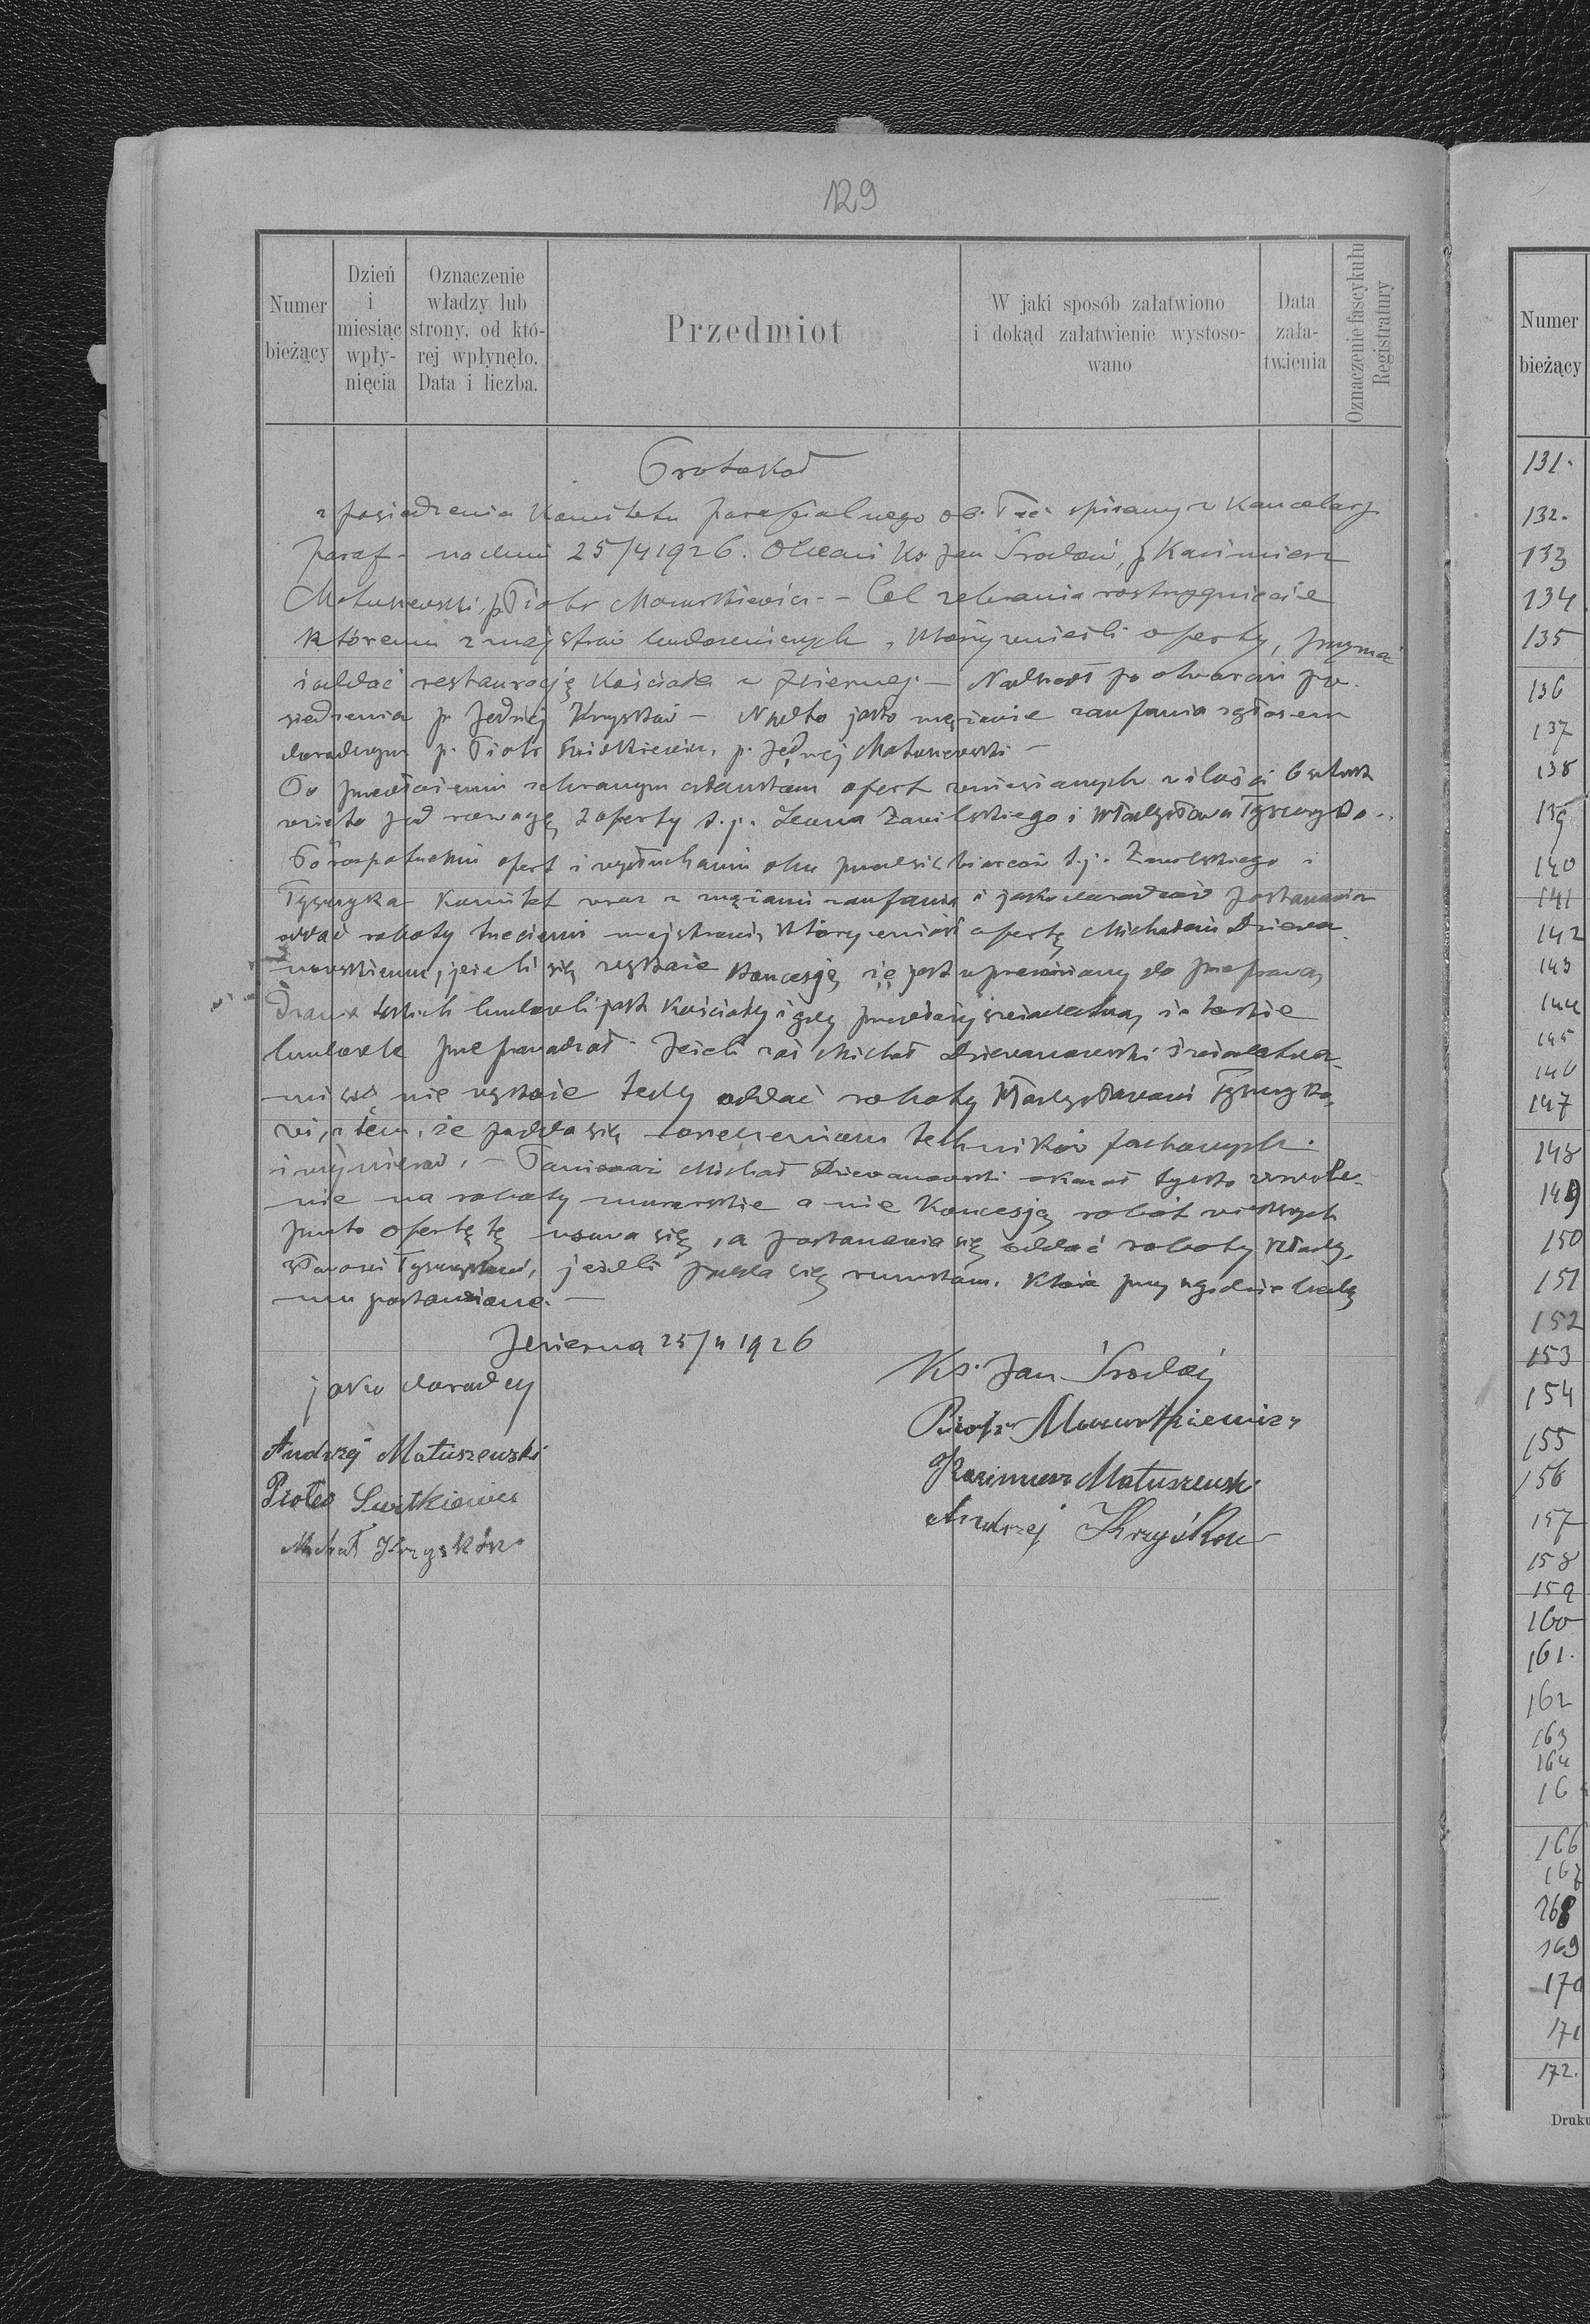 129
Numer bieżący
Dzień i miesiąc wpły-nięcia
Oznaczenie władzy lub strony, od któ-rej wpłynęło. Data i liczba.
Przedmiot
W jaki sposób załatwiono i dokąd załatwienie wystoso-wano
Data zała-twienia
Oznaczenie fascykułu Registratury
Protokoł
z posiedzenia Komitetu parafialnego ob. łac. spisany w Kancelarji
paraf. w dniu 25/4 1926. Obecni Ks Jan Środoń, p Kazimierz
Matuszewski, p Piotr Mazurkiewicz - Cel zebrania rozstrzygnięcie
któremu z majstrów budowniczych, którzy wnieśli oferty, przyznać
i oddać restaurację Kościoła w Jeziernej. - Nadszedł po otwarciu po-
siedzenia p Jędrzej Kryskow - Nadto jako mężowie zaufania
p. Piotr Świtkiewicz, p. Jędrzej Matuszewski -
Po przedłożeniu zebranym ofert wniesionych w ilości 6
wzięto pod rozwagę 2 oferty t. j. Leona Zawilskiego i Władysława Tyszczyka.
Po rozpatrzeniu ofert i wysłuchaniu obu przedsiębiorców t.j. Zawilskiego i
Tyszczyka Komitet wraz z mężami zaufania jako doradców postanawia
oddać roboty trzeciemu majstrowi, który wniósł ofertę Michałowi Dziewa-
nowskiemu, jeżeli się wykaże koncesją, iż jest uprawniony do
takich budowli jak Kościoły i gdy przedłoży świadectwa, iż takie
budowle przeprowadzał - Jeżeli zaś Michał Dziewanowski świadectwa-
mi się nie wykaże tedy oddać roboty Władysławowi Tyszczyko-
wi, z tem, że podda się orzeczeniom techników fachowych
i inżynierów. - Ponieważ Michał Dziewanowski okazał tylko zezwole-
nie na roboty murarskie a nie Koncesją robót
przeto ofertę tę usuwa się, a postanawia się oddać roboty Włady-
sławowi Tyszczykowi, jeżeli podda się warunkom, które przy ugodzie będą
mu postawione. -
Jezierna 25/4 1926
Ks. Jan Środoń
jako doradcy
Piotr Mazurkiewicz
Andrzej Matuszewski
Kazimierz Matuszewski
Piotr Świtkiewicz
Andrzej Kryśkow
Michał Kryśków
Numer
bieżący
131.
132.
133
134
135
136
137
138
139
140
141
142
143
144
145
146
147
148
149
150
151
152
153
154
155
156
157
158
159
160
161.
162
163
164
166
167
168
169
170
171
172.
Druku